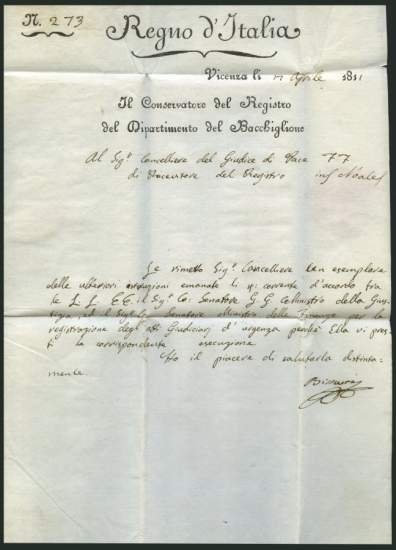 N. 273
Regno d'Italia
Vicenza li 11 Aprile 1811
Il Conservatore del Registro
del Dipartimento del Bacchiglione
Al Sigr Cancelliere del Giudice di Pace
di del Registro in Noale
Le rimetto Sigr Cancelliere un esemplare
delle ulteriori istruzioni emanate li corrente d'acordo tra
le L L EE il Sigr Co: Senatore G. G. Ministro della Gius-
tizia, ed il Sigr Co: Senatore Ministro delle Finanze per la
registrazione degli atti Giudiciarj d'urgenza perchè Ella vi pres-
ti la corrispondente esecuzione.
Ho il piacere di salutarla distinta-
mente.